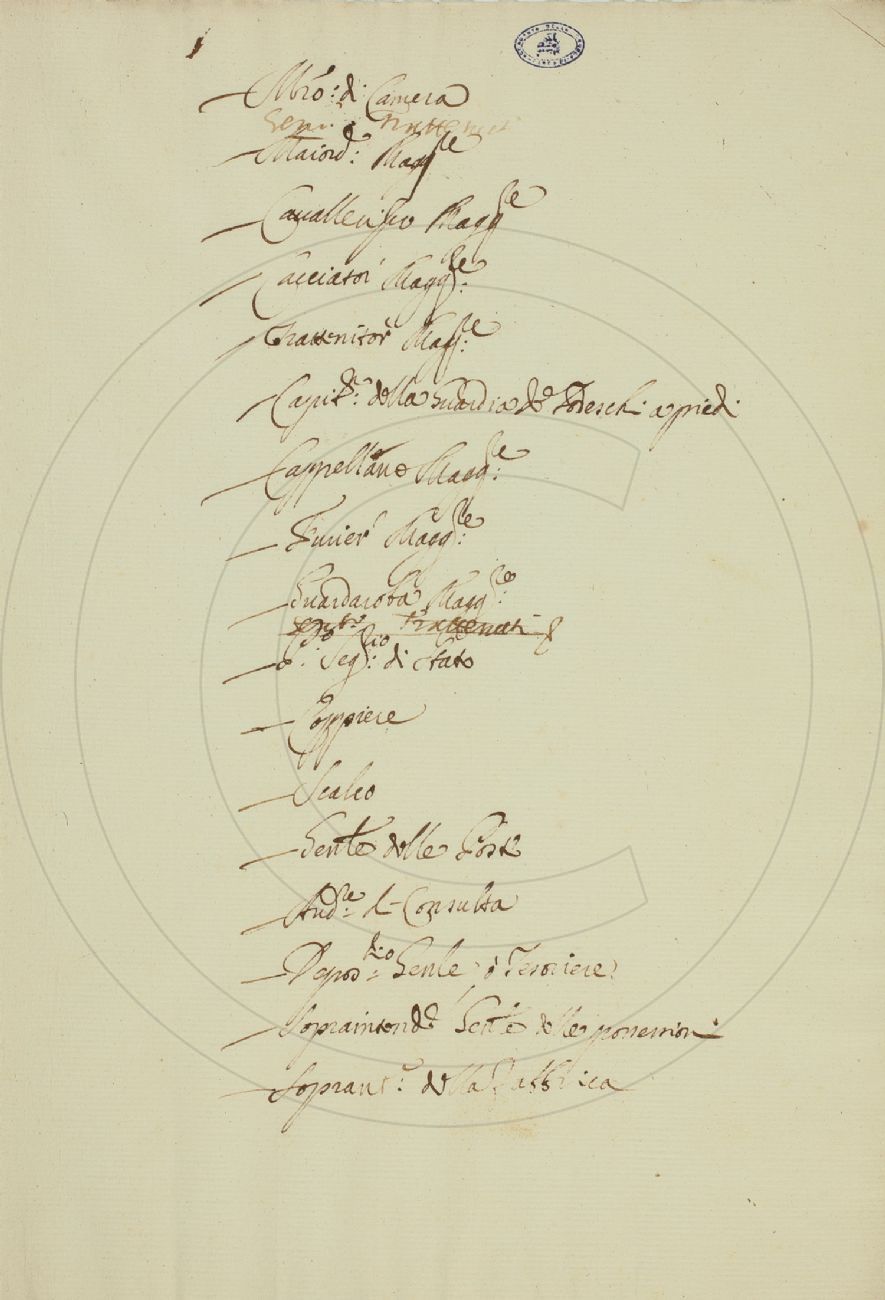 Mro: di Camera
Maiord: Magg.re
Cauallerizo Magg.re
Cacciator Magg.re:
Trattenitor Magg.re:
Capit.o: della Guardia de Todeschi a piedi
Cappellano Magg.re:
Furier Magg.re:
Guardaroba Magg.re:
Trattenuti
P.o: Seg.rio: di Stato
Coppiere
Scalco
Gen.le delle Poste
Aud.re: di Consulta
Depos.rio: Gen.le ò Tesoriere
Sopraintend.e Gen.le delle possessioni
Sopraint.e: della Fabbrica